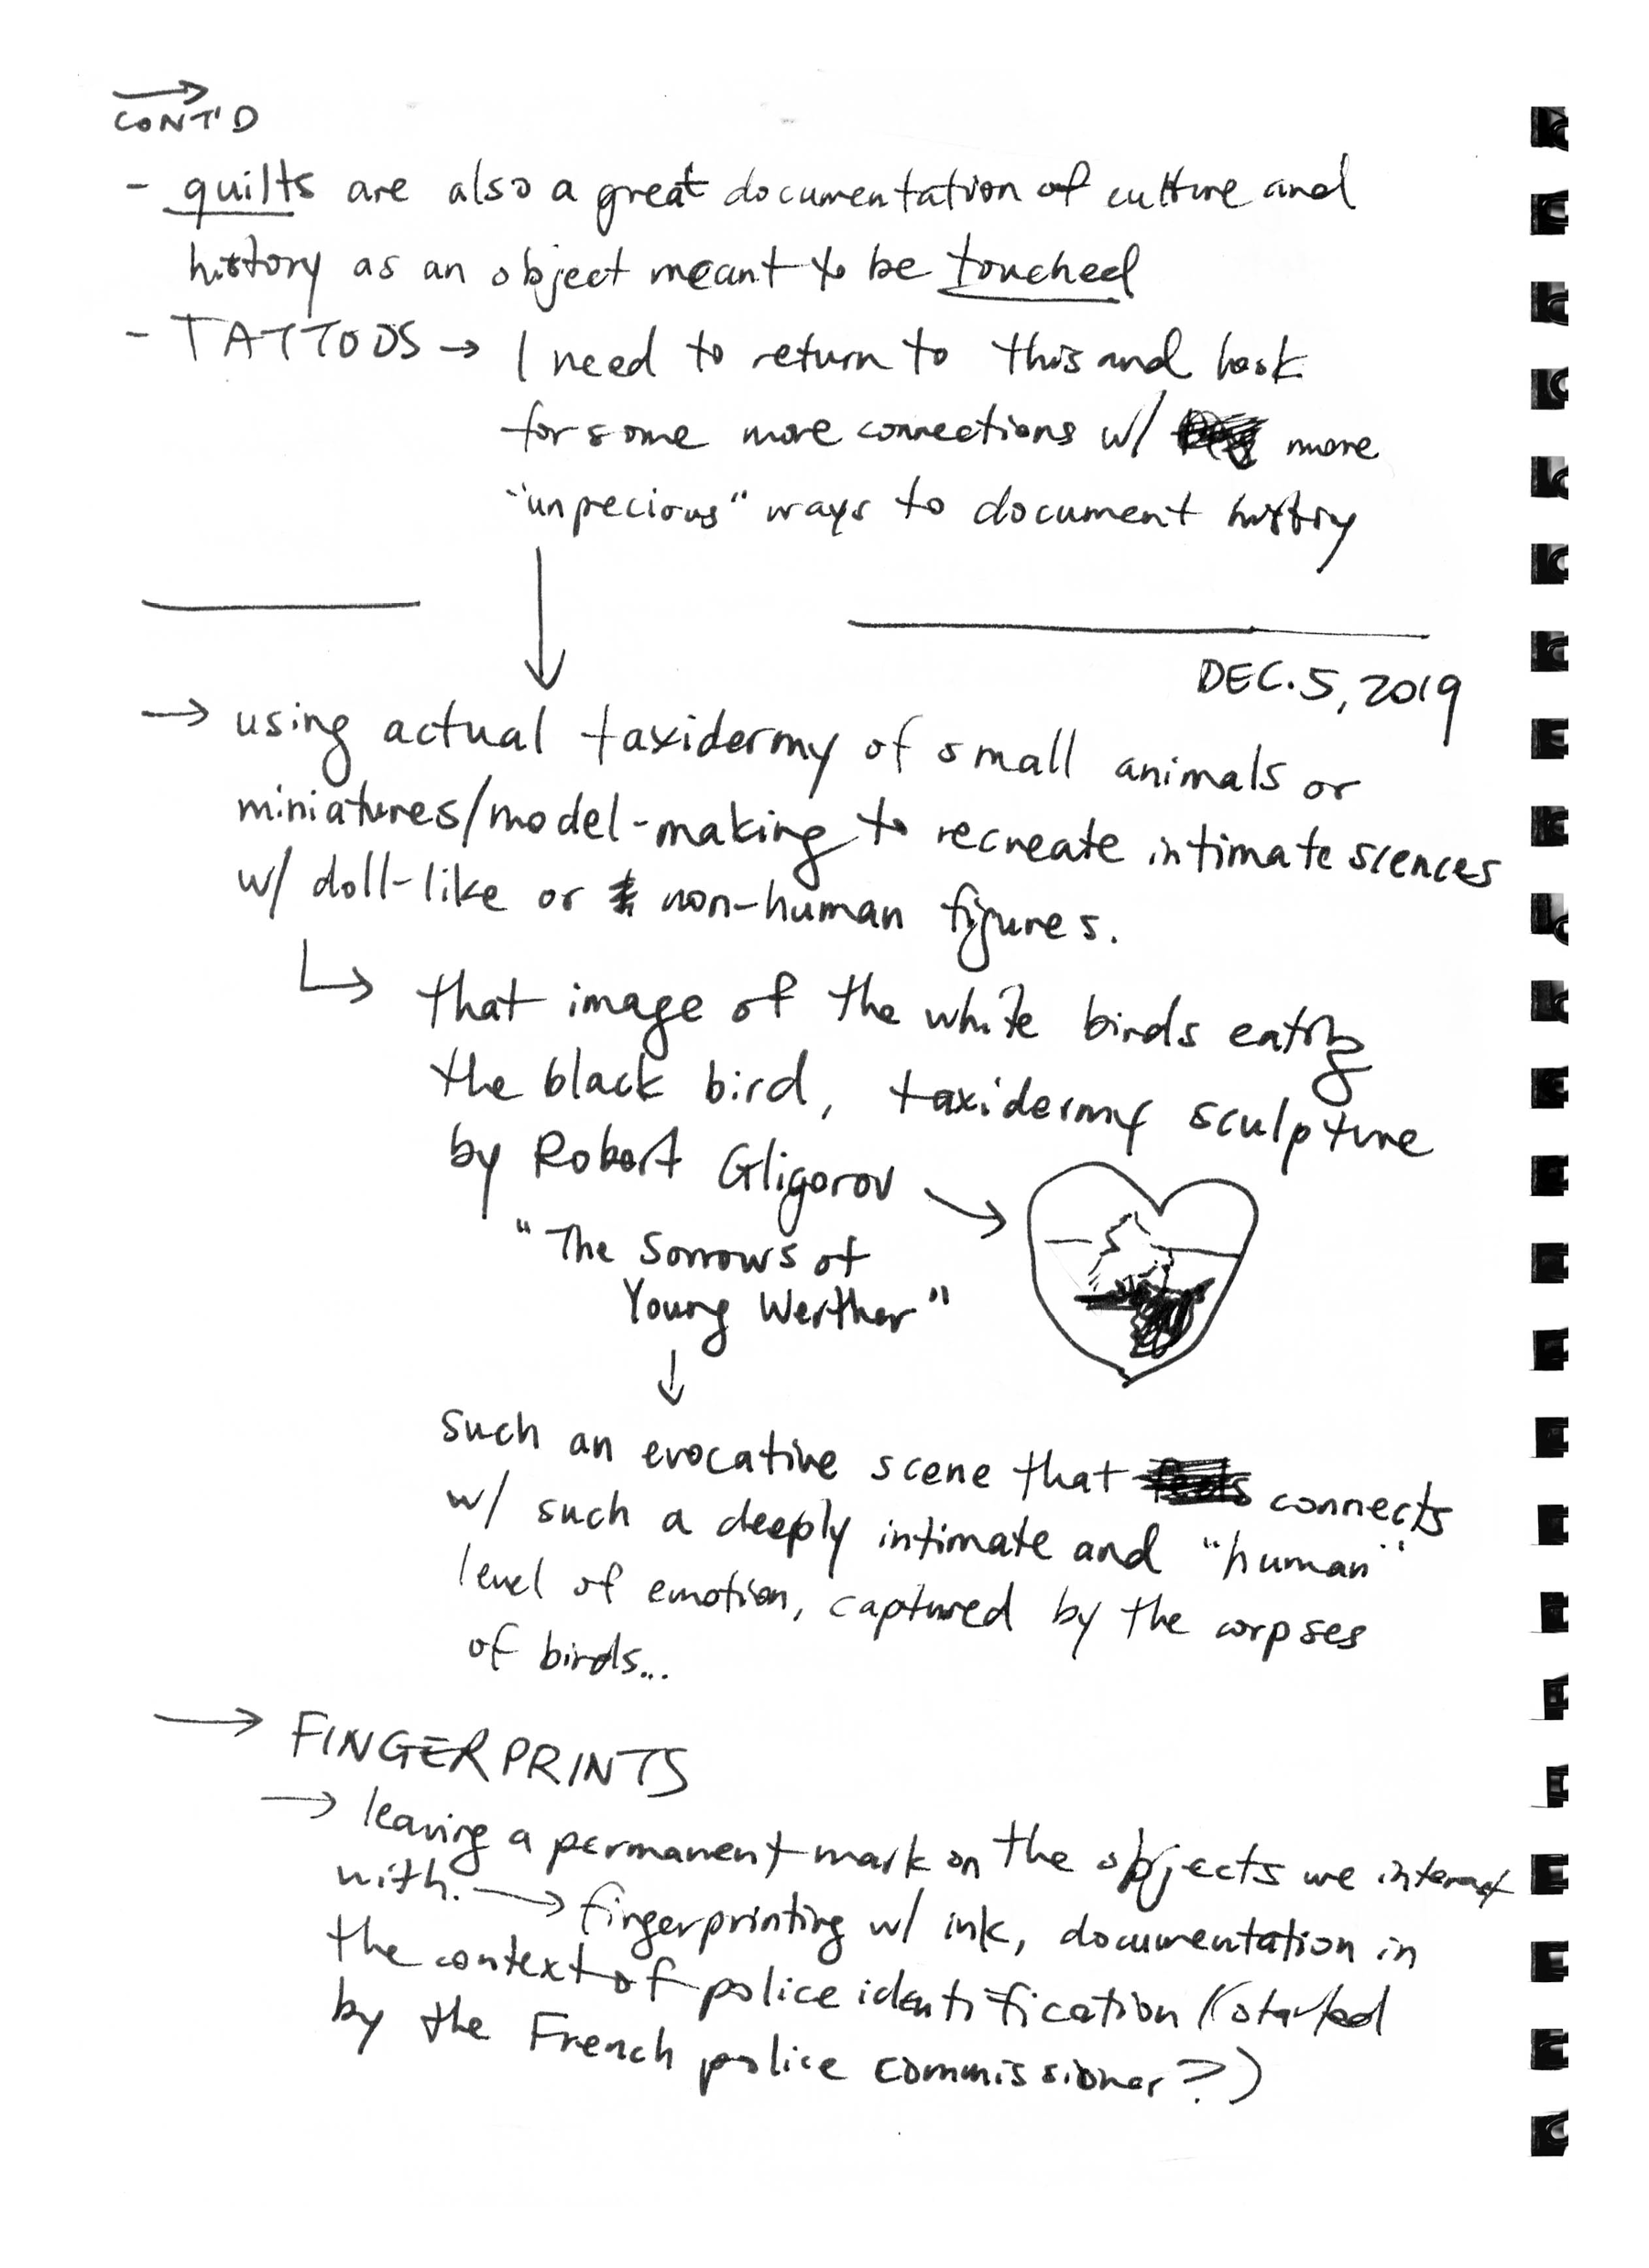 CONT'D
- quilts are also a great documentation of culture and
history as an object meant to be touched
- TATTOOS → I need to return to this and look
for some more connections w/ more
"unpecious" ways to document history
DEC. 5, 2019
→ using actual taxidermy of small animals or
miniatures/model-making to recreate intimate scences
w/ doll-like or non-human figures.
↳ that image of the white birds eating
the black bird, taxidermy sculpture
by Robert Gligorov →
"The Sorrows of
Young Werther"
↓
such an evocative scene that connects
w/ such a deeply intimate and "human"
level of emotion, captured by the corpses
of birds...
→ FINGERPRINTS
→ leaving a permanent mark on the objects we interact
with. → fingerprinting w/ ink, documentation in
the context of police identification (started
by the French police commissioner?)